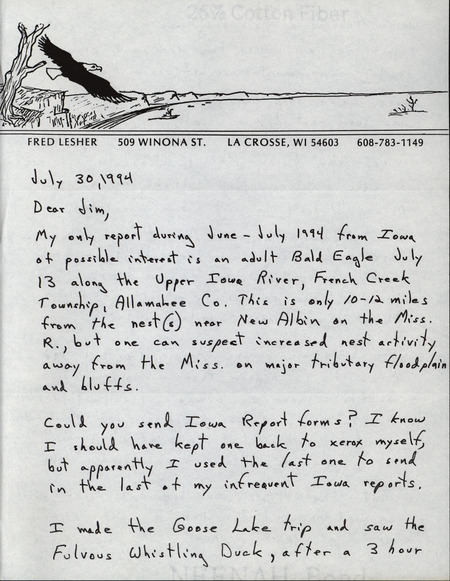 25% Cotton Fiber
FRED LESHER 509 WINONA ST. LA CROSSE, WI 54603 608-783-1149
July 30, 1994
Dear Jim,
My only report during June - July 1994 from Iowa
of possible interest is an adult Bald Eagle July
13 along the Upper Iowa River, French Creek
Township, Allamahee Co. This is only 10-12 miles
from the nest(s) near New Albin on the Miss.
R., but one can suspect increased nest activity
away from the Miss. on major tributary floodplain
and bluffs.
Could you send Iowa Report forms? I know
I should have kept one back to xerox myself,
but apparently I used the last one to send
in the last of my infrequent Iowa reports.
I made the Goose Lake trip and saw the
Fulvous Whistling Duck, after a 3 hour
NEENAH